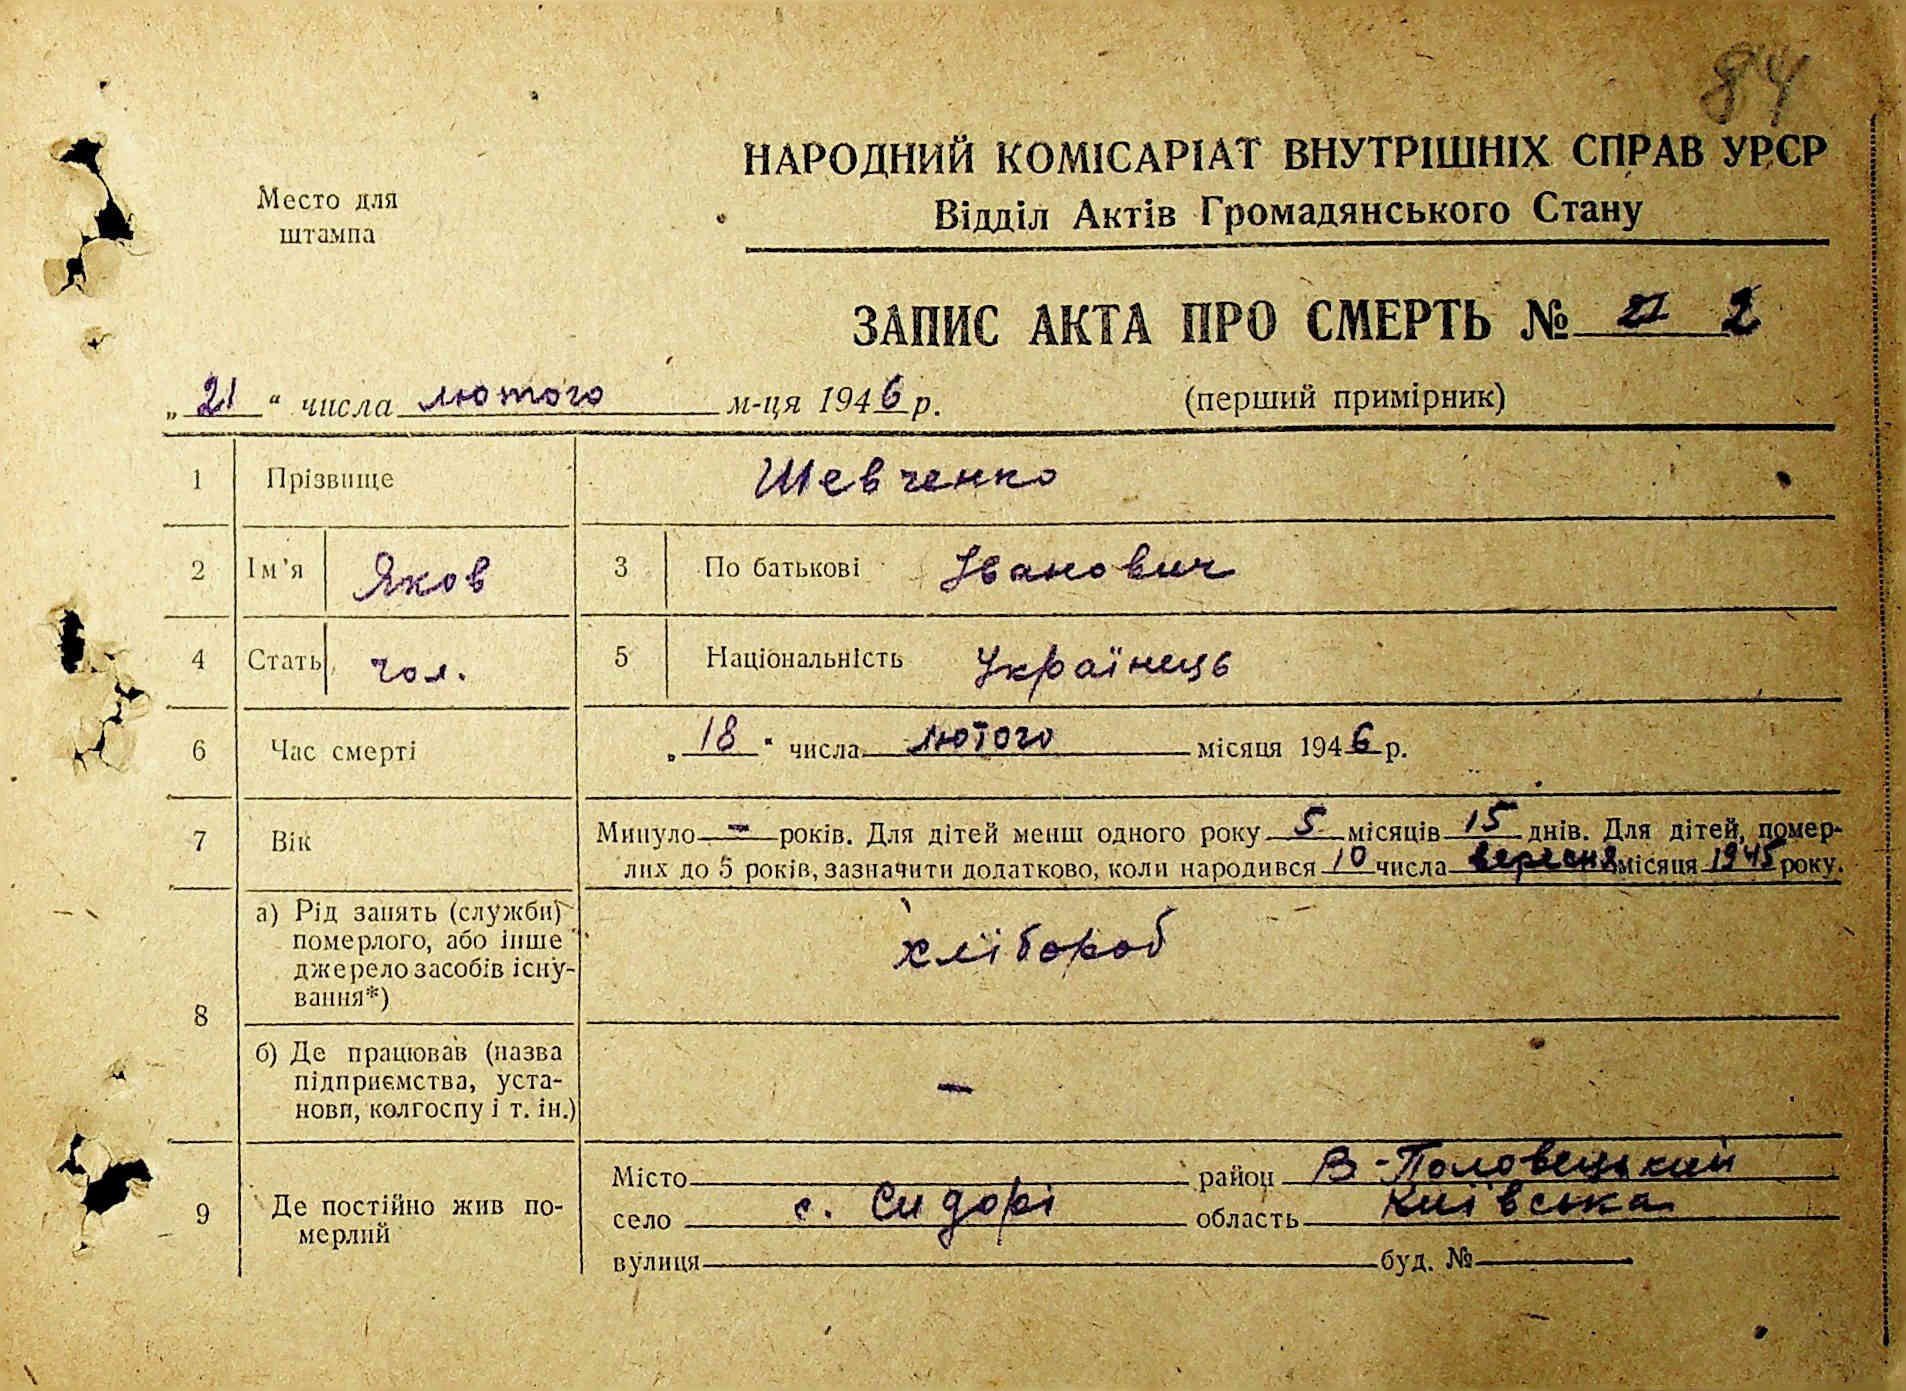 84
Место для
штампа
НАРОДНИЙ КОМІСАРІАТ ВНУТРІШНІХ СПРАВ УРСР
Відділ Актів Громадянського Стану
ЗАПИС АКТА ПРО СМЕРТЬ № 2
„21“ числа лютого м-ця 1946 р. (перший примірник)
1 Прізвище Шевченко
2 Ім’я Яков 3 По батькові Іванович
4 Стать чол. 5 Національність Українець
6 Час смерті „18“ числа лютого місяця 1946 р.
7 Вік Минуло - років. Для дітей менш одного року 5 місяців 15 днів. Для дітей, помер-
лих до 5 років, зазначити додатково, коли народився 10 числа вересня місяця 1945 року.
8 а) Рід занять (служби)
померлого, або інше
джерело засобів існу-
вання*)
хлібороб
б) Де працював (назва
підприємства, уста-
нови, колгоспу і т. ін.)
—
9 Де постійно жив по-
мерлий
Місто район В-Половецький
село с. Сидорі область Київська
вулиця буд. №